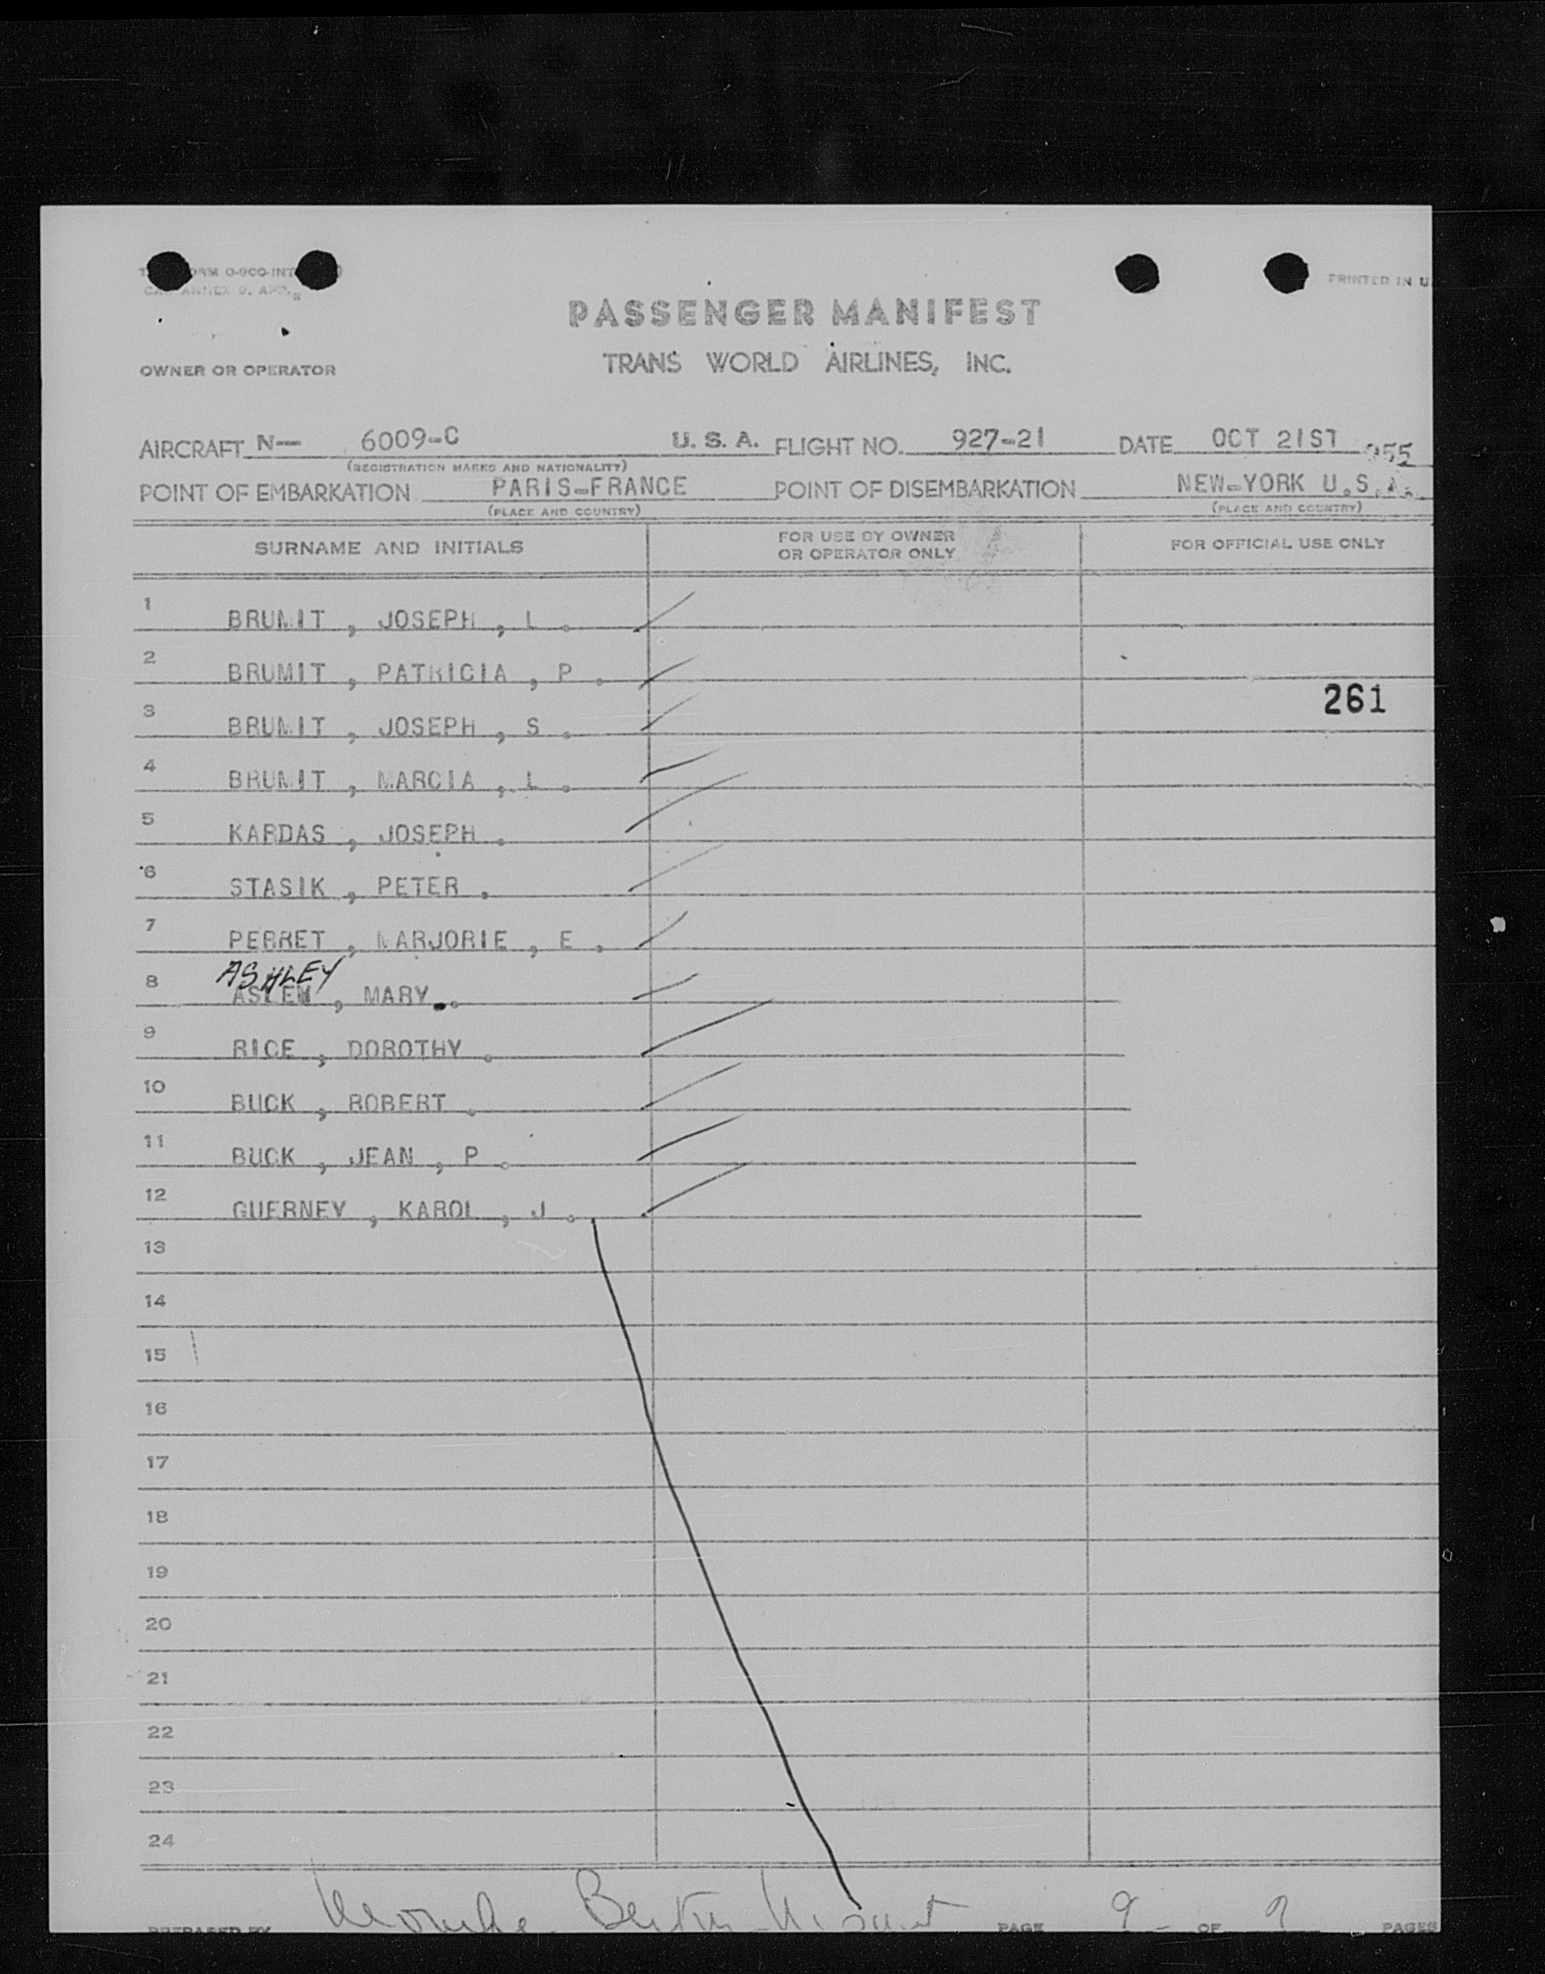 FORM O-900-INT
ANNEX 9. APP.
PRINTED IN U
PASSENGER MANIFEST
OWNER OR OPERATOR
TRANS WORLD AIRLINES, INC.
AIRCRAFT N— 6009-C U. S. A. FLIGHT NO. 927-21 DATE OCT 21ST 955
(REGISTRATION MARKS AND NATIONALITY)
POINT OF EMBARKATION PARIS-FRANCE POINT OF DISEMBARKATION NEW-YORK U.S.A.
(PLACE AND COUNTRY) (PLACE AND COUNTRY)
SURNAME AND INITIALS FOR USE BY OWNER OR OPERATOR ONLY FOR OFFICIAL USE ONLY
1 BRUMIT , JOSEPH , L .
2 BRUMIT , PATRICIA , P .
261
3 BRUMIT , JOSEPH , S .
4 BRUMIT , MARCIA , L .
5 KARDAS , JOSEPH .
6 STASIK , PETER .
7 PERRET , MARJORIE , E .
ASHLEY
8 ASLEM , MARY .
9 RICE , DOROTHY .
10 BUCK , ROBERT .
11 BUCK , JEAN , P .
12 GUERNEY , KAROL , J .
13
14
15
16
17
18
19
20
21
22
23
24
PREPARED BY PAGE 9 OF 9 PAGES